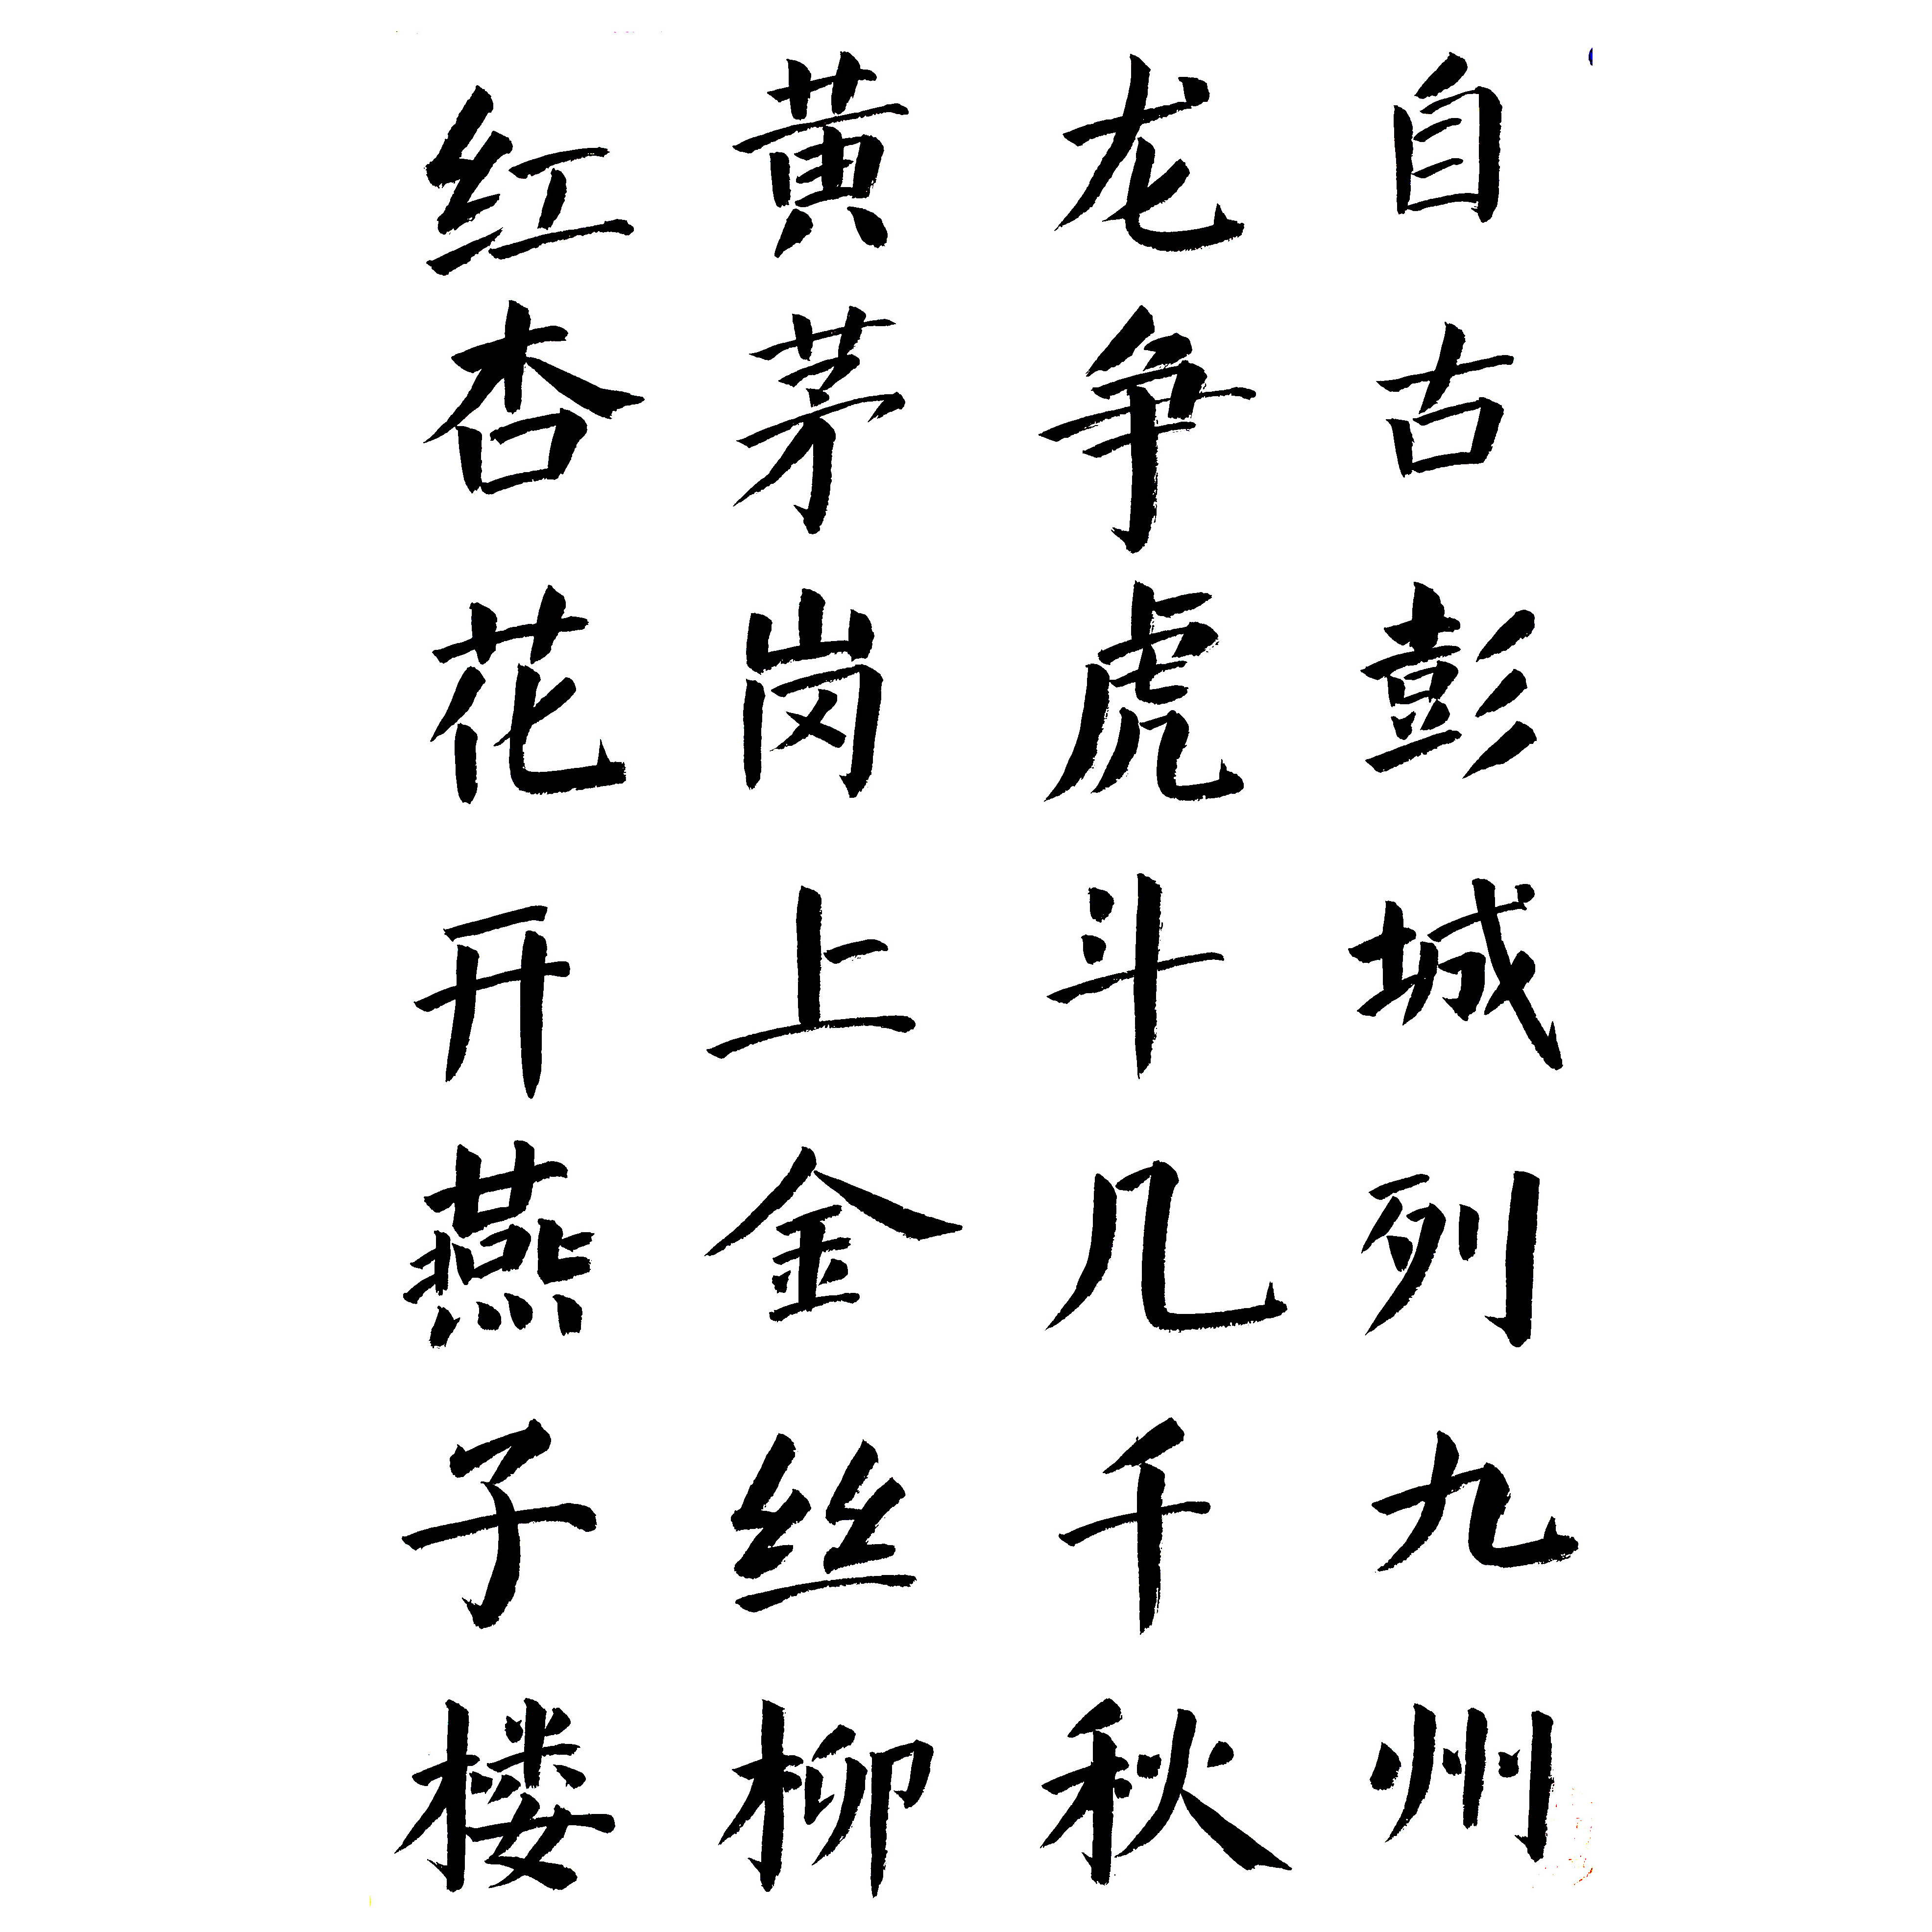 自古彭城列九州
龙争虎斗几千秋
黄茅岗上金丝柳
红杏花开燕子楼